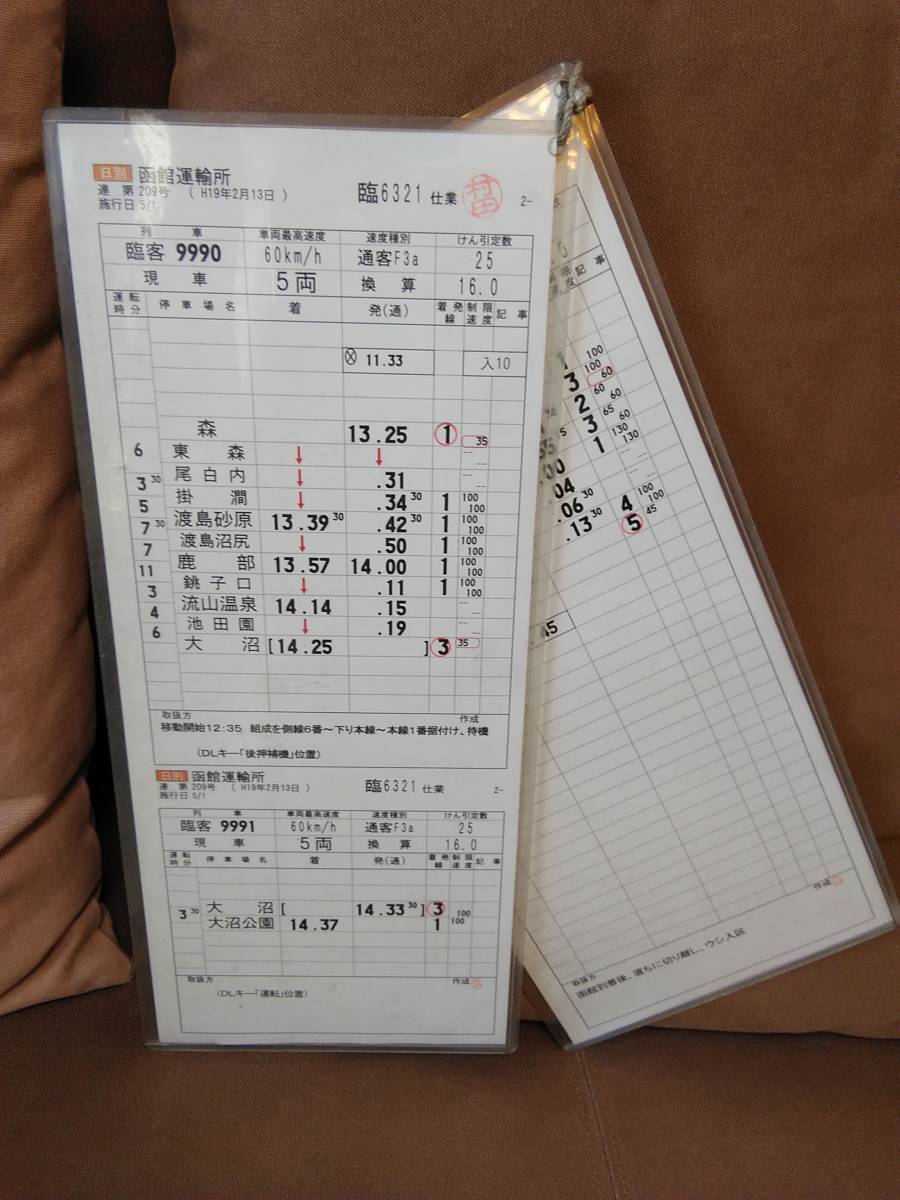 日別 函館運輸所
達 第209号 ( H19年2月13日 ) 臨6321 仕業 村田 2-
施行日 5/1
列 車 車両最高速度 速度種別 けん引定数
臨客 9990 60km/h 通客F3a 25
現 車 5両 換 算 16.0
運転時分 停 車 場 名 着 発(通) 着発線 制限速度 記 事
11.33 入10
森 13.25 1 35
6 東 森 ↓ ↓
3 30 尾白内 ↓ .31
5 掛 澗 ↓ .34 30 1 100 100
7 30 渡島砂原 13.39 30 .42 30 1 100 100
7 渡島沼尻 ↓ .50 1
11 鹿 部 13.57 14.00 1 100 100
3 銚子口 ↓ .11 1 100 100
4 流山温泉 14.14 .15
6 池田園 ↓ .19
大 沼 [14.25 ] 3 35
取扱方 作成
移動開始12:35 組成を側線6番~下り本線~本線1番据付け、待機
(DLキー「後押補機」位置)
日別 函館運輸所
達 第209号 ( H19年2月13日 ) 臨6321 仕業 2-
施行日 5/1
列 車 車両最高速度 速度種別 けん引定数
臨客 9991 60km/h 通客F3a 25
現 車 5両 換 算 16.0
運転時分 停 車 場 名 着 発(通) 着発線 制限速度 記 事
3 30 大 沼 [ 14.33 30 ] 3 100
大沼公園 14.37 1 100
取扱方 作成
(DLキー「運転」位置)
記 事
1 100
3 100 60
2 60
5 3 65 60
.00 1 130 130
.04
.06 30 4 100 100
.13 30 5 45
45
作成
取扱方
函館到着後、直ちに切り離し、ウシ入区